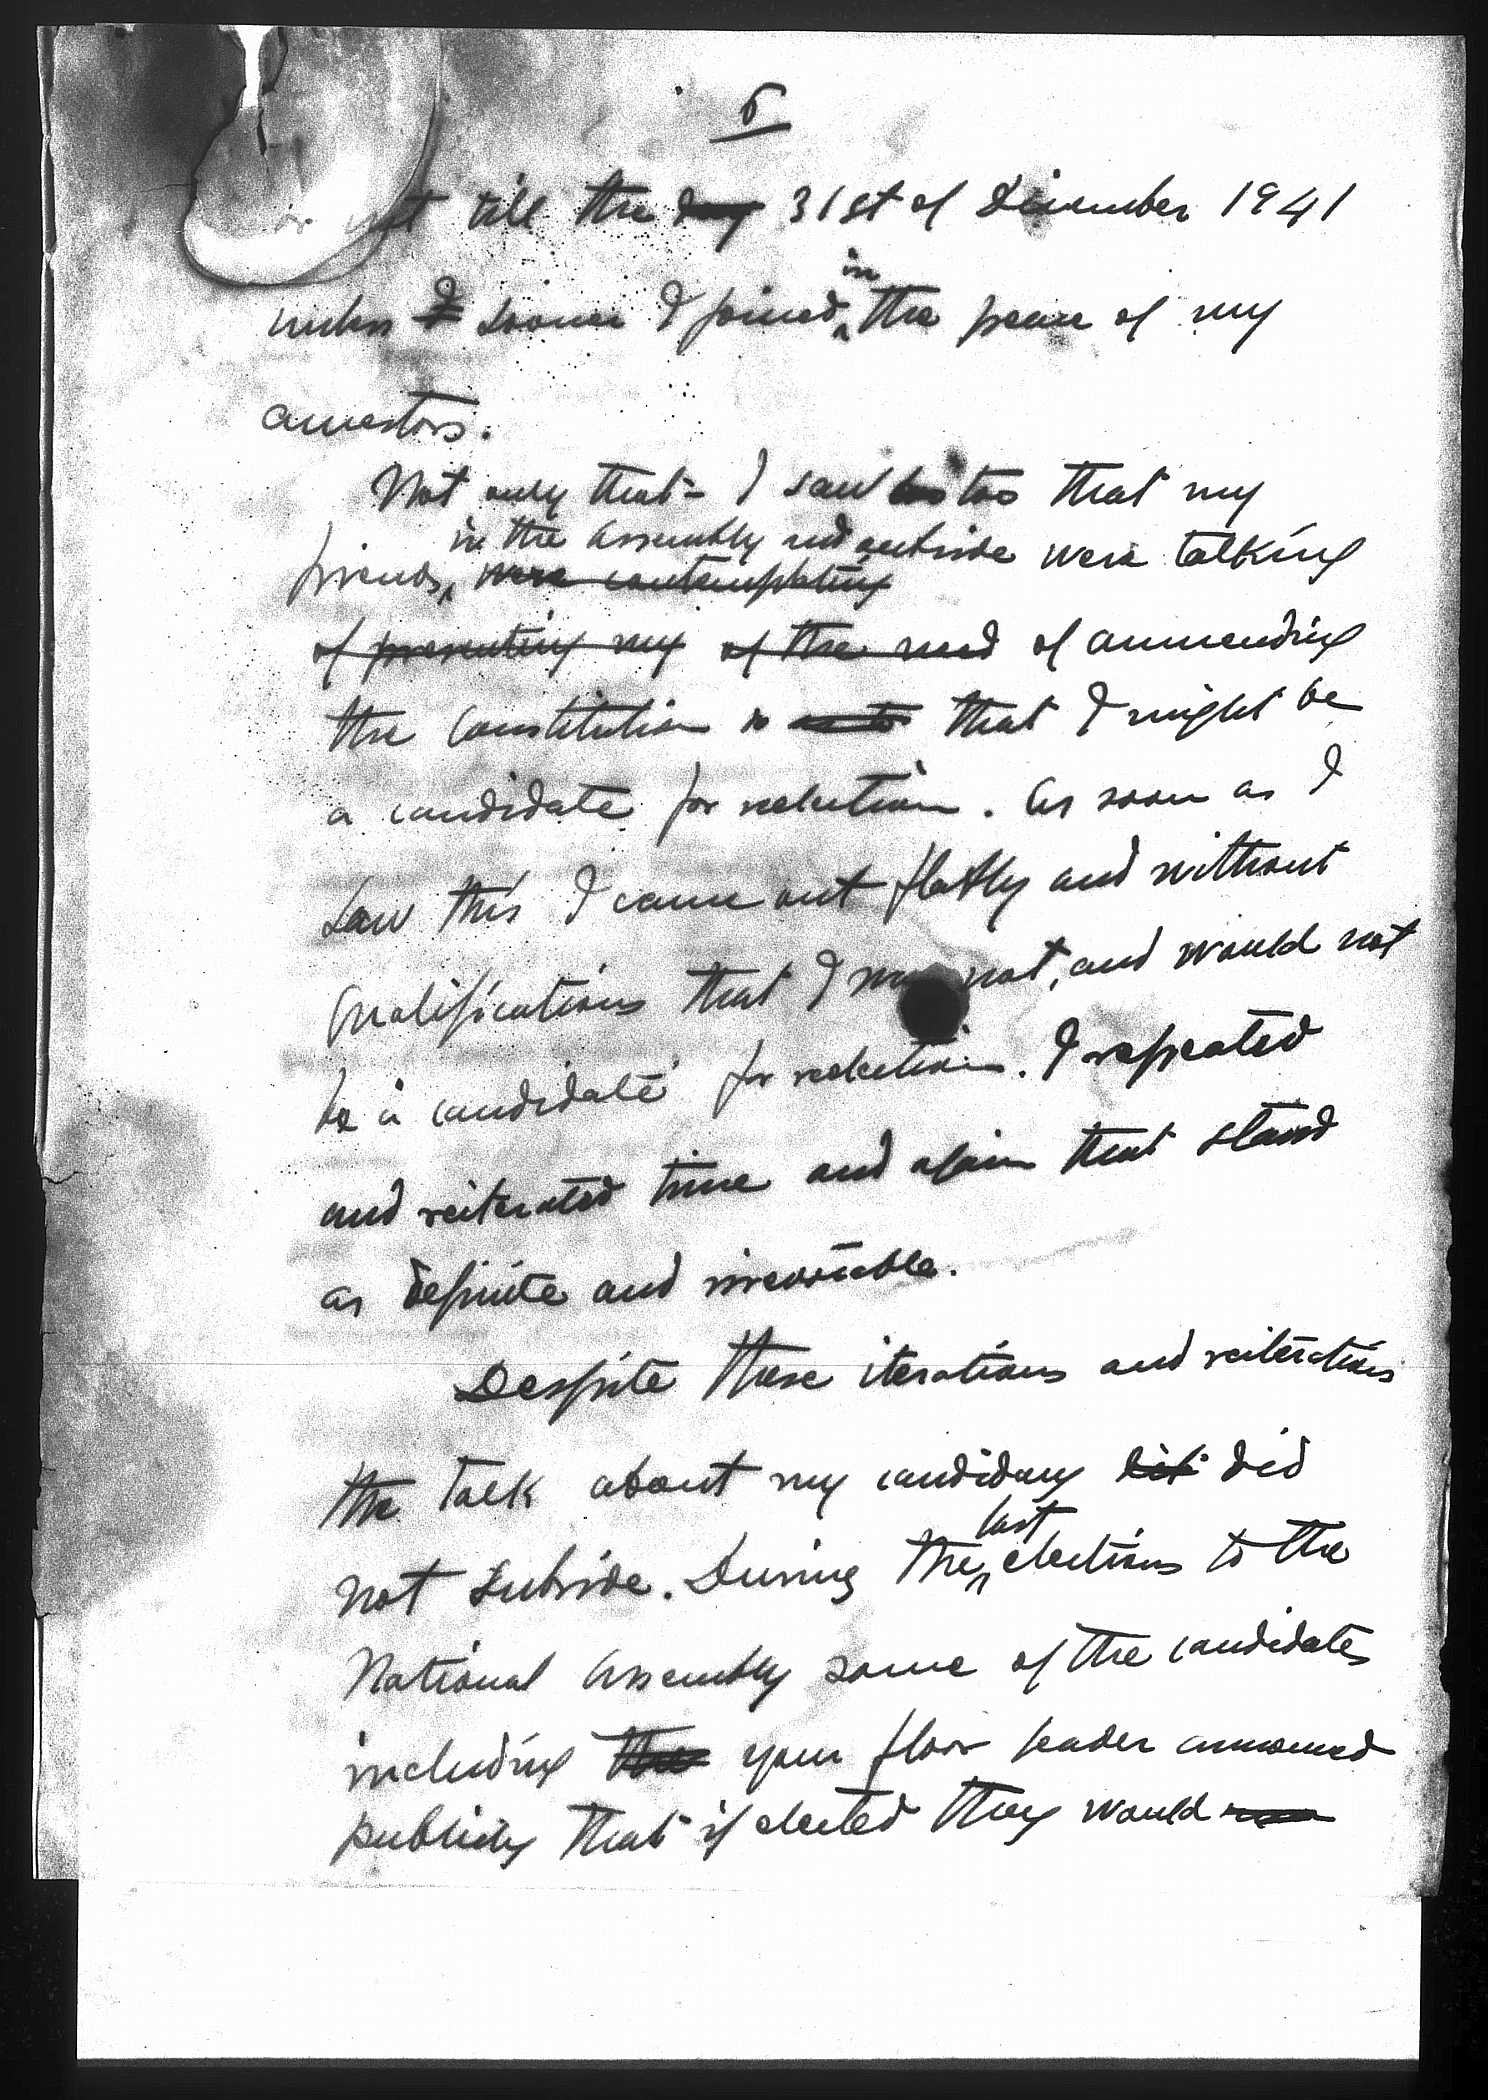 5
till the day 31st of December 1941
unless I sooner I joined in the peace of my
ancestors.
Not only that - I saw too that my
in the Assembly and outside were talking
friends, were contemplating
of presenting my of the need of ammending
the Constitution so as to that I might be
a candidate for reelection. As soon as I
saw this I came out flatly and without
qualifications that I was not, and would not
be a candidate for reelection. I repeated
and reiterated time and again that stand
as definite and irrevocable.
Despite these iterations and reiterations
the talk about my candidacy did
not subside. During the last elections to the
National Assembly some of the candidates
including the your floor leader announced
publicly that if elected they would